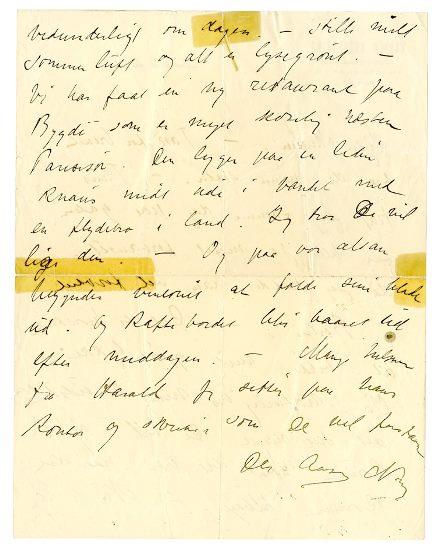 vidunderligt om dagen. – stille mild
sommerluft og alt er lysegrønt. –
Vi har faat en ny restaurant paa
Bygdø som er meget
Den ligger paa en liten
Knaus midt ude i vandet med
en flydebro i land. Jeg tror De vil
lige den. – Og paa vor altan
begynder at folde sine blade
ud. Og Kaffebordet blir baaret ud
efter middagen. – Mange hilsner
fra Harald. Jeg sitter paa hans
Kontor og skriver som De vel
Deres